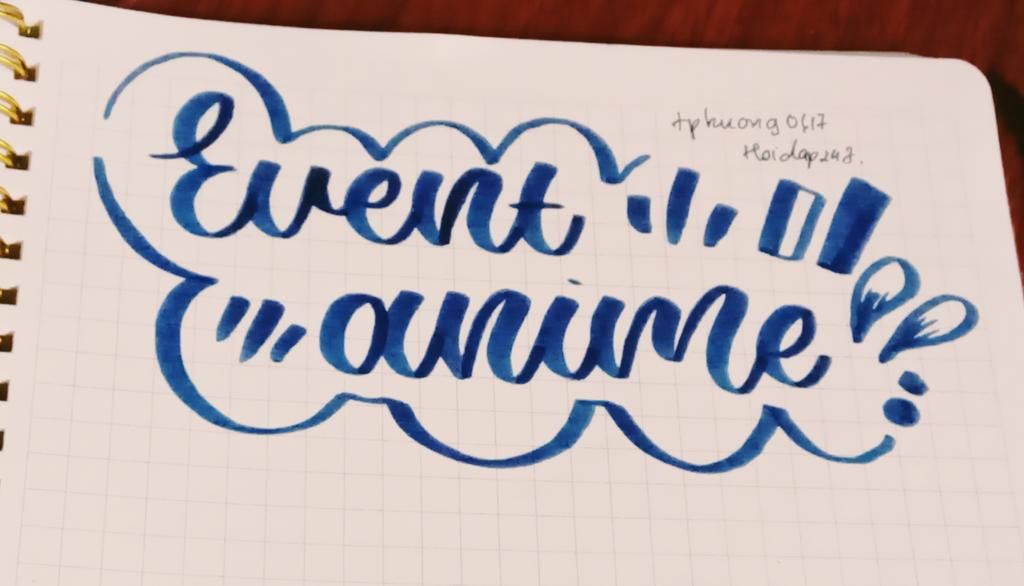 tphuong0617
Hoidap247.
Event
anime